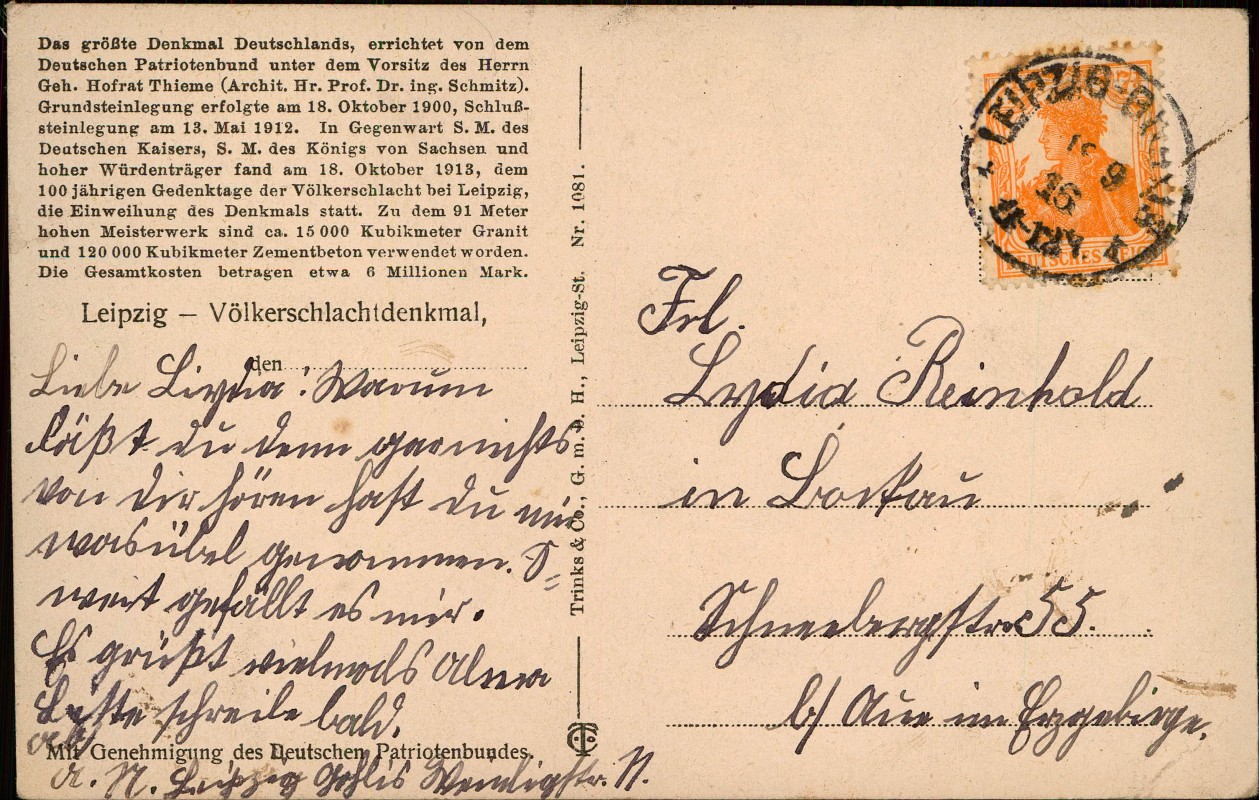 Das größte Denkmal Deutschlands, errichtet von dem
Deutschen Patriotenbund unter dem Vorsitz des Herrn
Geh. Hofrat Thieme (Archit. Hr. Prof. Dr. ing. Schmitz).
Grundsteinlegung erfolgte am 18. Oktober 1900, Schluß-
steinlegung am 13. Mai 1912. In Gegenwart S. M. des
Deutschen Kaisers, S. M. des Königs von Sachsen und
hoher Würdenträger fand am 18. Oktober 1913, dem
100 jährigen Gedenktage der Völkerschlacht bei Leipzig,
die Einweihung des Denkmals statt. Zu dem 91 Meter
hohen Meisterwerk sind ca. 15 000 Kubikmeter Granit
und 120 000 Kubikmeter Zementbeton verwendet worden.
Die Gesamtkosten betragen etwa 6 Millionen Mark.
Leipzig – Völkerschlachtdenkmal,
den
Liebe Lydia! Warum
läßt du denn garnichts
von dir hören hast du mir
was übel genommen. S=
weit gefällt es mir.
Es grüßt vielmals Alma
Bitte schreibe bald.
Mit Genehmigung des Deutschen Patriotenbundes.
A. N. Leipzig Gohlis
Trinks & Co., G. m. b. H., Leipzig-St. Nr. 1081.
LEIPZIG
9
16
DEUTSCHES REICH
Frl.
Lydia Reinhold
in Bockau
Schneebergstr. 55.
b/ Aue im Erzgebirge.